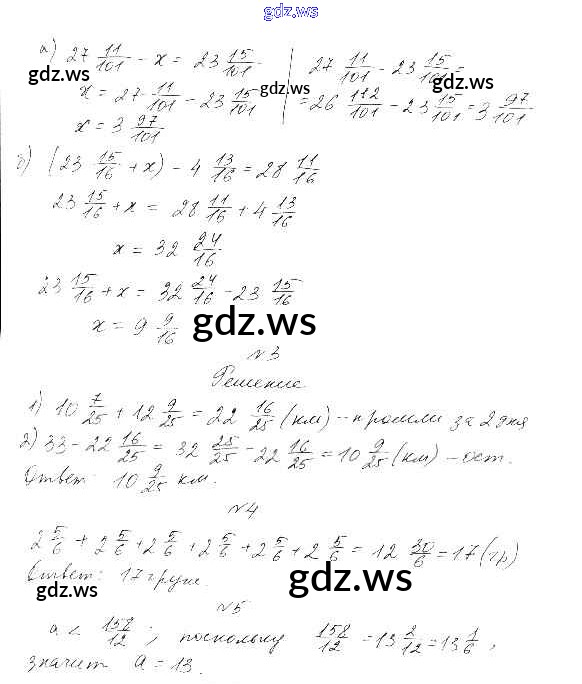 gdz.ws
а) 27 11/101 - x = 23 15/101 | 27 11/101 - 23 15/101 =
gdz.ws gdz.ws
x = 27 11/101 - 23 15/101 | = 26 112/101 - 23 15/101 = 3 97/101
x = 3 97/101
gdz.ws
б) (23 15/16 + x) - 4 13/16 = 28 11/16
23 15/16 + x = 28 11/16 + 4 13/16
x = 32 24/16
23 15/16 + x = 32 24/16 - 23 15/16
x = 9 9/16
gdz.ws
№3
Решение
1) 10 7/25 + 12 9/25 = 22 16/25 (км) - прошли за 2 дня
2) 33 - 22 16/25 = 32 25/25 - 22 16/25 = 10 9/25 (км) - ост.
Ответ: 10 9/25 км.
№4
2 5/6 + 2 5/6 + 2 5/6 + 2 5/6 + 2 5/6 + 2 5/6 = 12 30/6 = 17 (гр)
Ответ: 17 груш.
gdz.ws gdz.ws
№5
a < 158/12 ; поскольку 158/12 = 13 2/12 = 13 1/6 ,
значит a = 13.
gdz.ws